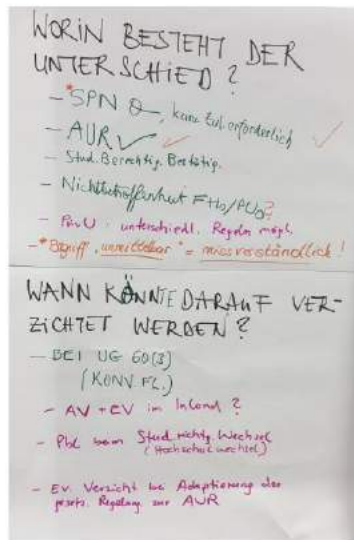 WORIN BESTEHT DER
UNTERSCHIED?
- *SPN O, keine Zul. erforderlich ✓
- AUR ✓ ✓
- Stud. Berechtig. Bestätig.
- Nichtbetroffenheit FHs/PUs?
- PrivU. unterschiedl. Regeln mögl.
- *Begriff "unmittelbar" = missverständlich!
WANN KÖNNTE DARAUF VER-
ZICHTET WERDEN?
- BEI UG 60(3)
(KONV. FL.)
- AV + EV im Inland?
- Pbl beim Stud.richtg. Wechsel
(Hochschulwechsel)
- Ev. Verzicht bei Adaptierung der
gesetz. Regelung zur AUR